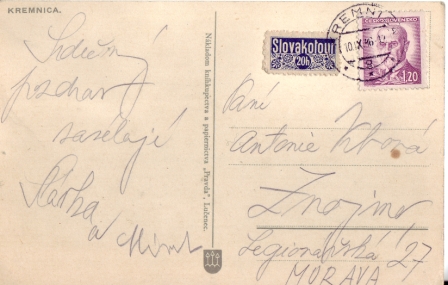 KREMNICA.
Srdečný
pozdrav
zasílají
Slávka
a
Nákladom kníhkupectva a papiernictva „Pravda“, Lučenec.
Slovakotour
20h
KREMNI
10.IX.46
ČESKOSLOVENSKO
1,20
Paní
Antonie
Znojmo
Legionářská 27
MORAVA